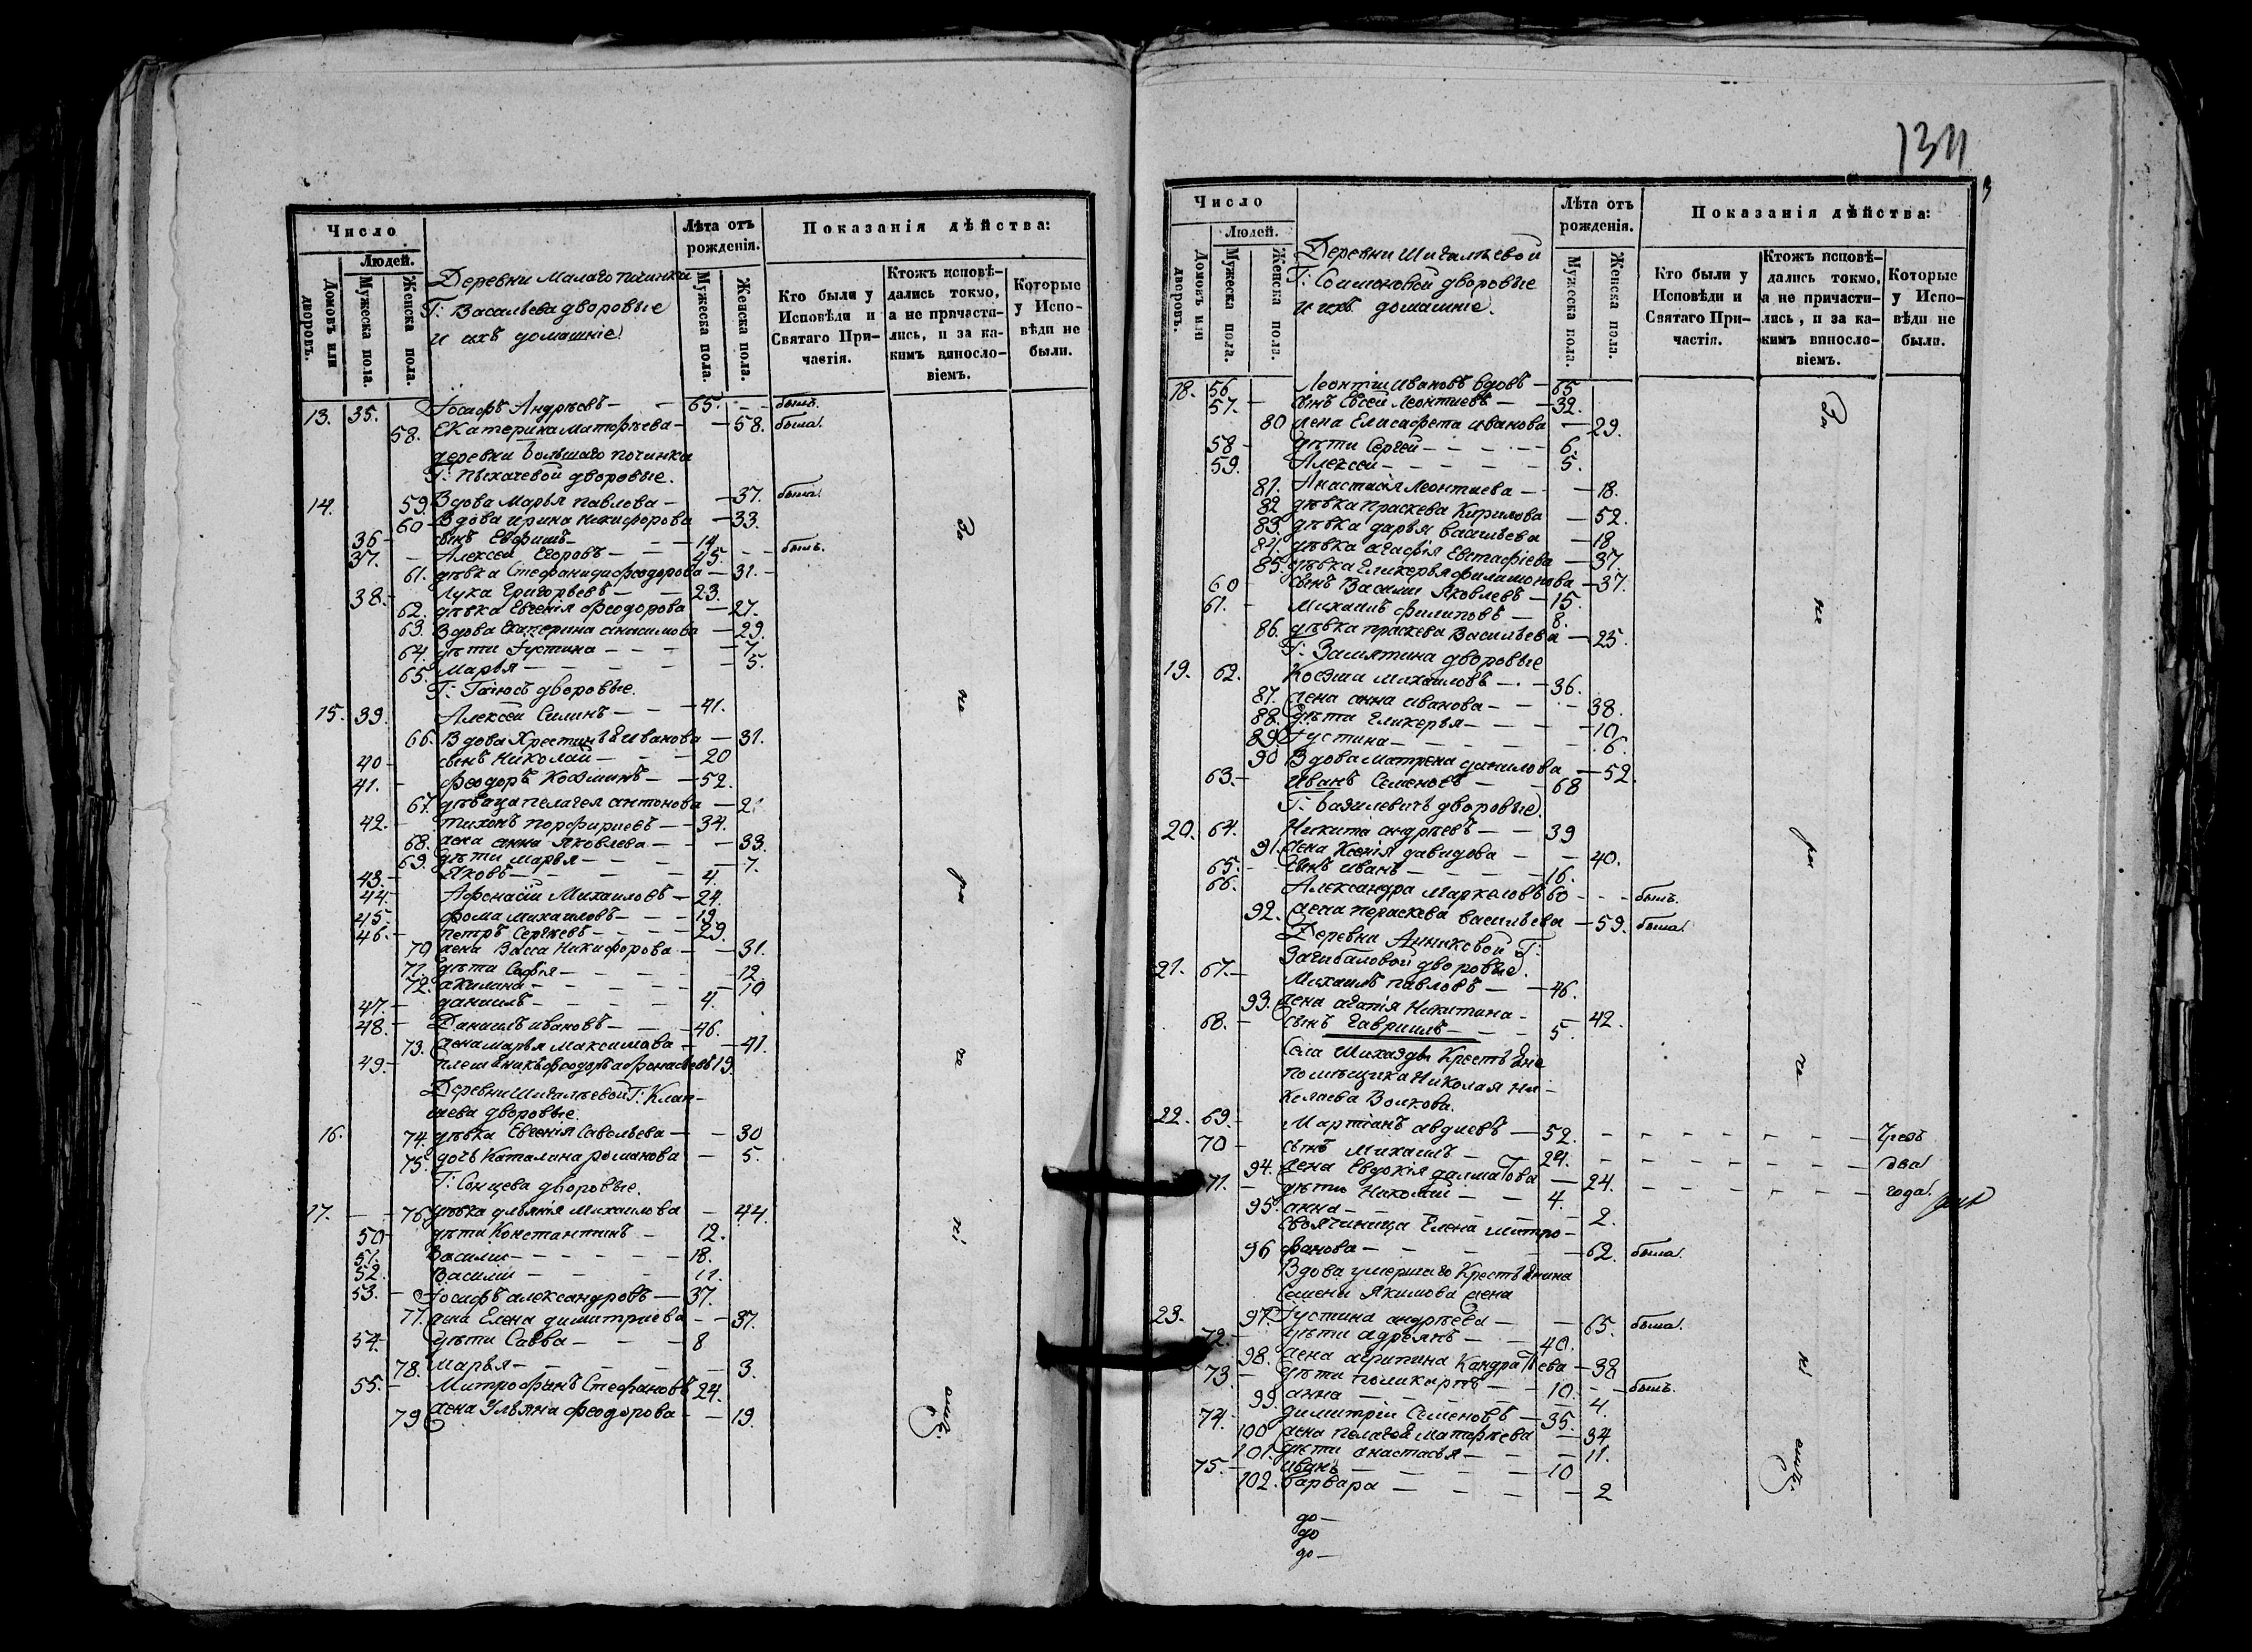 Число
Людей.
Домовъ или дворовъ.
Мужеска пола.
Женска пола.
Деревни Малаго починка
Г: Васильева дворовые
и ихъ домашніе
Лѣта отъ рожденія.
Мужеска пола.
Женска пола.
Показанія дѣйства:
Кто были у Исповѣди и Святаго Причастія.
Ктожъ исповѣдались токмо, а не причастились, и за какимъ винословіемъ.
Которые у Исповѣди не были.
13. 35. Іосифъ Андрѣевъ — — 65. — — былъ.
58. Екатерина Матфѣева — — 58. была.
деревни большаго починка
Г: Пыхачевой дворовые.
14. 59. Вдова Марья павлова — — 37. была.
60 Вдова ирина Никифорова — 33.
36 — сынъ Евфимъ — — — 14.
37. — Алексей Егоровъ — — 45. — — былъ.
61. дѣвка Стефанида феодорова — 31. —
38. — Лука Григорьевъ — — 23.
62. дѣвка Евгенія феодорова — 27.
63. Вдова Екатерина анисимова — 29.
64. дѣти Іустина — — — — 7.
65. Марья — — — — — 5.
Г: дворовые.
15. 39. Алексей Силинъ — — — 41.
66. Вдова Ивановa — 31.
40 — сынъ Николай — — — 20
41. — феодоръ Козминъ — — 52.
67. дѣвица пелагея антонова — 2
42. — тихонъ порфириевъ — — 34.
68. жена анна Яковлева — — — 33.
69. дѣти марья — — — — 7.
43. — Яковъ — — — — — 4.
44. — Афонасій Михаиловъ — 24.
45. — фома михаиловъ — — — 19.
46. — петръ Сергѣевъ — — — — 29.
70 жена Васса Никифорова — — 31.
71. дѣти Софія — — — — — 12
72. акилина — — — — — 10
47. — даниилъ — — — — 4.
48. — Даниилъ ивановъ — — — 46.
73. жена марья Максимова — — 41.
49. — племяникъ феодоръ афонасьевъ 19.
Деревни Шигалѣевой Г:
дворовые.
16. 74. дѣвка Евгенія Савельева — — 30
75. дочь Каталина романова — 5.
Г: Сонцева дворовые.
17. — — 76. дѣвка Михаилова — 44.
50 — дѣти Константинъ — 12.
51. Василій — — — — — 18.
52. Василій — — — — 11.
53. — Іосифъ александровъ — 37.
77. жена Елена димитриева — — 37.
54. — дѣти Савва — — — 8
78. Марья — — — — — 3.
55. — Митрофанъ Стефановъ 24.
79 жена Ульяна феодорова — — 19.
За не ра че ні емъ.
134
Число
Людей.
Домовъ или дворовъ.
Мужеска пола.
Женска пола.
Деревни Шигалѣевой
Г: Соимоновой дворовые
и ихъ домашніе.
Лѣта отъ рожденія.
Мужеска пола.
Женска пола.
Показанія дѣйства:
Кто были у Исповѣди и Святаго Причастія.
Ктожъ исповѣдались токмо, а не причастились, и за какимъ винословіемъ.
Которые у Исповѣди не были.
18. 56. Леонтіи Ивановъ вдовъ — 65
57. — сынъ Евсей Леонтиевъ — — 32.
80 жена Елисафета иванова — 29.
58 — дѣти Сергей — — — — — 6.
59. Алексей — — — — — 5.
81. Анастасія Леонтиева — — 18.
82 дѣвка праскева Кирилова — 52.
83. дѣвка дарья васильева — 18
84. дѣвка агафія Евстафіева — 37.
85. дѣвка Гликерья филимонова — 37.
60 — сынъ Василіи Яковлевъ — 15.
61. — Михаилъ филиповъ — 8.
86. дѣвка праскева Васильева — 25.
Г: Замятина дворовые
19. 62. Козма михаиловъ — — 36.
87. жена анна иванова — — — 38.
88. дѣти Гликерья — — — — 10
89 Іустина — — — — — 6.
90 Вдова матрена данилова — 52.
63. — Иванъ Семеновъ — — 68
Г: базилевичъ дворовые
20. 64. Никита андрѣевъ — — 39
91. жена Ксенія давидова — — 40.
65. — сынъ иванъ — — — — 16.
66. Александра 60 — — — былъ.
92. жена пераскева васильева — 59. была.
Деревни Анниковой Г:
Загибаловой дворовые.
21. 67. — Михаилъ павловъ — — 46.
93. жена агапія Никитина — — 42.
68. — сынъ Гавриилъ — — — 5.
Села Крестьяне
помѣщика Николая Ни-
колаева Волкова.
22. 69. — Мартіанъ авдиевъ — 52. — — — — — — — Чрезъ
70 — сынъ михаилъ — — 24. — — — — — — — два
94. жена Евдокія далматова — 24. — — — — — — года.
71. — дѣти Николай — — 4.
95. анна — — — — — 2.
Своячиница Елена митро-
96 фанова — — — — — 62. была.
Вдова умершаго Крестьянина
Семена Якимова жена
23. 97. Іустина андрѣева — — 65. была.
72. — дѣти адреянъ — — 40.
98. жена агрипина Кондратьева — 38
73 — дѣти поликарпъ — — 10. — — былъ.
99. анна — — — — — 4.
74. — димитріи Семеновъ — 35.
100 жена пелагея матфѣева — 34
101. дѣти анастасья — — — 11.
75. — иванъ — — — — 10
102. варвара — — — — 2
За не ра че ні емъ.
до —
до
до —